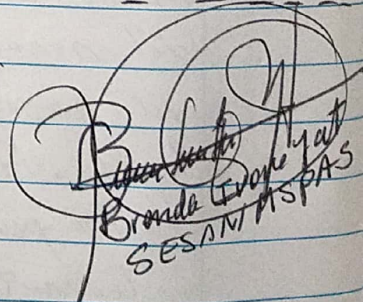 Brenda Ivone Yat
SESAN/MSPAS